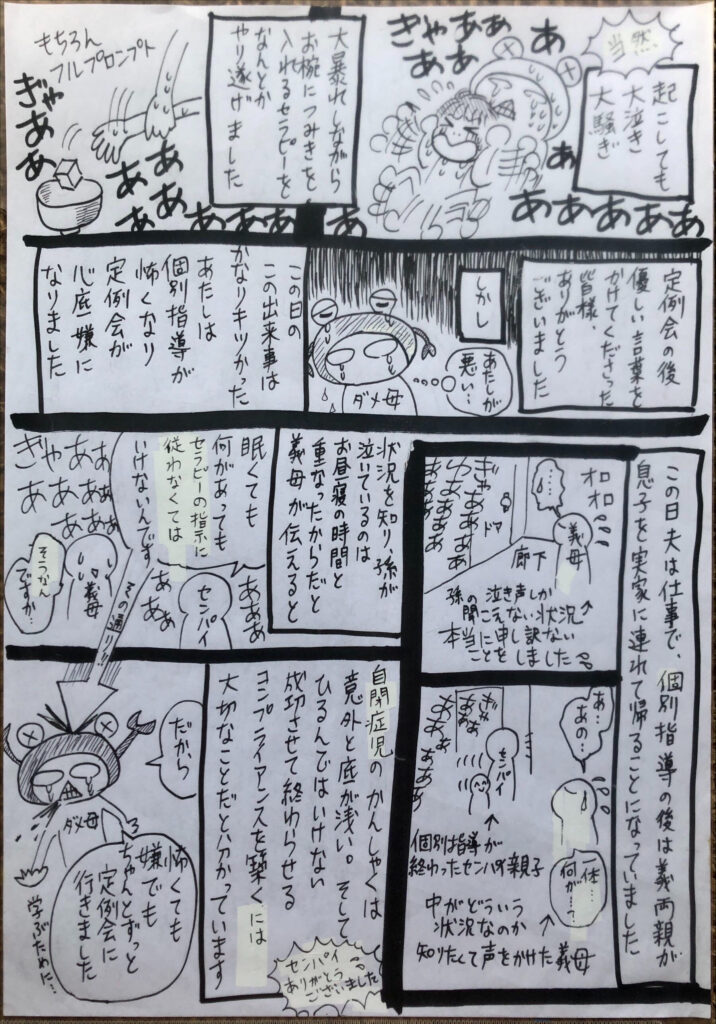 当然
起こしても
大泣き
大騒ぎ
あ
ぎゃああ
ああ
あ
あ
あああああ
大暴れしながら
お椀につみきを
入れるセラピーを
なんとか
やり遂げました
もちろん
フルプロンプト
ぎゃ
ああ
ああ
ああ
ああああ
定例会の後
優しい言葉を
かけてくださった
皆様、
ありがとう
ございました
しかし
あたしが
悪い…
ダメ母
この日の
この出来事は
かなりキツかった
あたしは
個別指導が
怖くなり
定例会が
心底嫌に
なりました
この日夫は仕事で、個別指導の後は義両親が
息子を実家に連れて帰ることになっていました
オロオロ
義母
ドア
廊下
ぎゃああああ
孫の泣き声しか
聞こえない状況
本当に申し訳ない
ことをしました
あ…
あの…
ぎゃああ
あああ
センパイ
個別指導が
終わったセンパイ親子
一体…
何が…?
中がどういう
状況なのか
知りたくて声をかけた義母
状況を知り、孫が
泣いているのは
お昼寝の時間と
重なったからだと
義母が伝えると
眠くても
何があっても
セラピーの指示に
従わなくては
いけないんです
センパイ
あああ
ああ
あああ
ああ
ぎゃああ
義母
そうなん
ですか…
その通り!!
自閉症児のかんしゃくは
意外と底が浅い。そして
ひるんではいけない
成功させて終わらせる
コンプライアンスを築くには
大切なことだと分かっています
センパイ
ありがとう
ございました
だから
ダメ母
怖くても
嫌でも
ちゃんとずっと
定例会に
行きました
学ぶために…